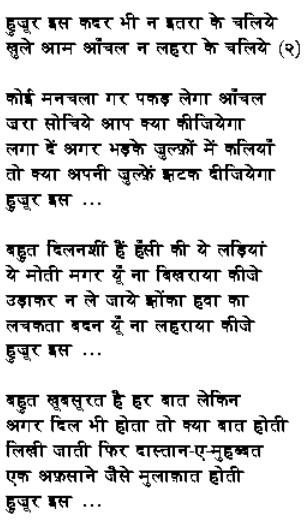 हुज़ूर इस कदर भी न इतरा के चलिये
खुले आम आँचल न लहरा के चलिये (२)

कोई मनचला गर पकड़ लेगा आँचल
ज़रा सोचिये आप क्या कीजियेगा
लगा दें अगर भड़के ज़ुल्फ़ों में कलियाँ
तो क्या अपनी ज़ुल्फ़ें झटक दीजियेगा
हुज़ूर इस ...

बहुत दिलनशीं हैं हँसी की ये लड़ियां
ये मोती मगर यूँ ना बिखराया कीजे
उड़ाकर न ले जाये झोंका हवा का
लचकता बदन यूँ ना लहराया कीजे
हुज़ूर इस ...

बहुत खूबसूरत है हर बात लेकिन
अगर दिल भी होता तो क्या बात होती
लिखी जाती फिर दास्तान-ए-मुहब्बत
एक अफ़साने जैसे मुलाक़ात होती
हुज़ूर इस ...